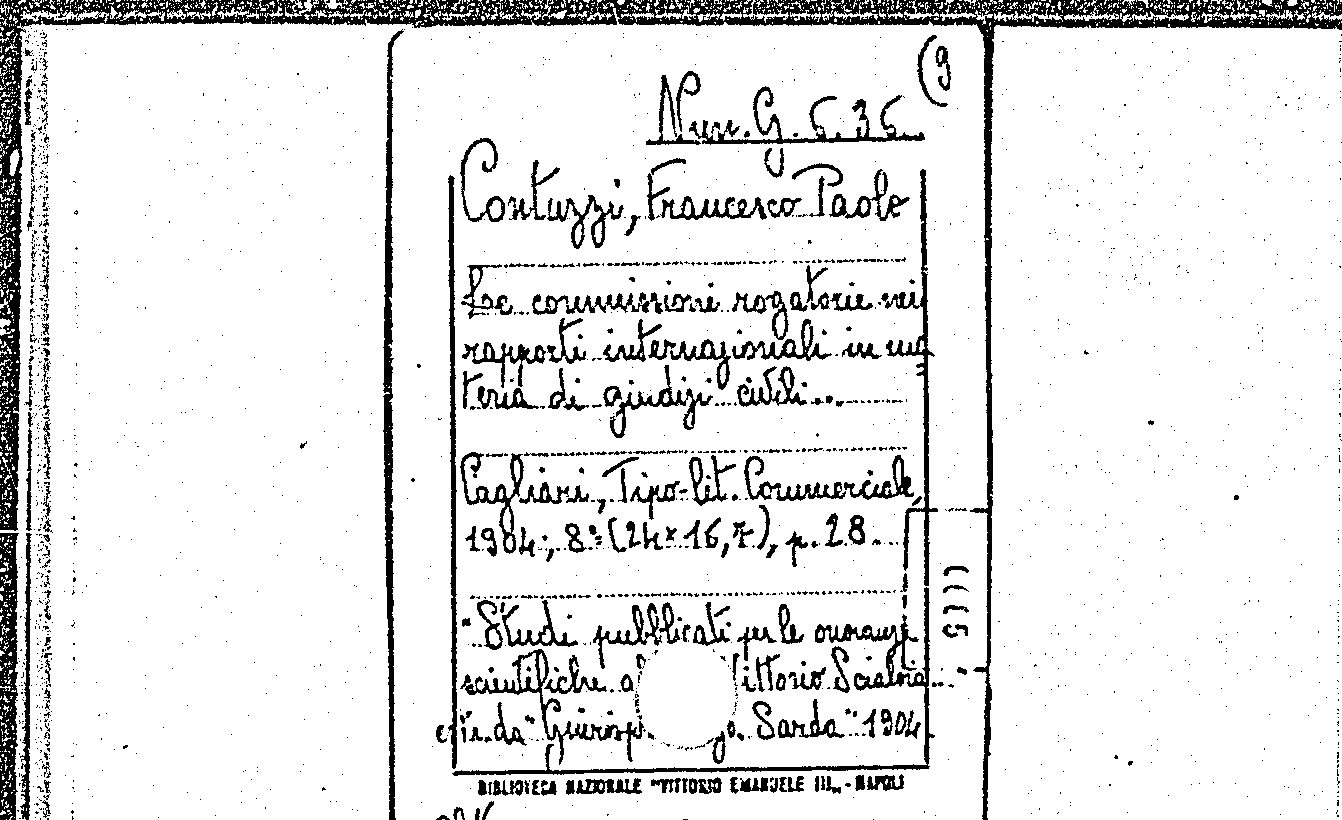 (9
Nun. G. 5. 35.
Contuzzi, Francesco Paolo
Le commissioni rogatorie nei
rapporti internazionali in ma
teria di giudizi civili...
Cagliari, Tipo-lit. Commerciale,
1904; 8º (24x16,7), p. 28.
"Studi pubblicati per le onoranze
scientifiche a ittorio Scialoia...
da "Giurisp. Sarda" 1904.
BIBLIOTECA NAZIONALE "VITTORIO EMANUELE III„ - NAPOLI